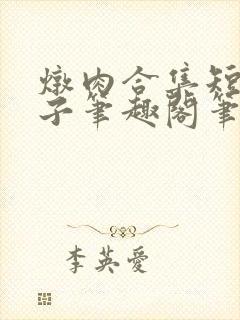 燉肉合集短
子筆趣閣筆
李英愛